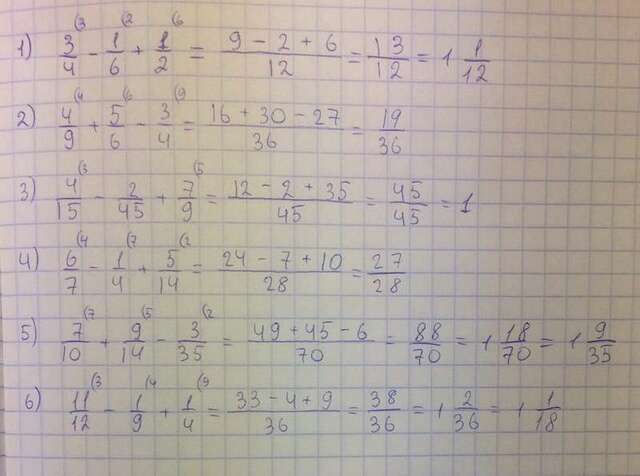 1) 3/4⁽³ - 1/6⁽² + 1/2⁽⁶ = (9 - 2 + 6)/12 = 13/12 = 1 1/12
2) 4/9⁽⁴ + 5/6⁽⁶ - 3/4⁽⁹ = (16 + 30 - 27)/36 = 19/36
3) 4/15⁽³ - 2/45 + 7/9⁽⁵ = (12 - 2 + 35)/45 = 45/45 = 1
4) 6/7⁽⁴ - 1/4⁽⁷ + 5/14⁽² = (24 - 7 + 10)/28 = 27/28
5) 7/10⁽⁷ + 9/14⁽⁵ - 3/35⁽² = (49 + 45 - 6)/70 = 88/70 = 1 18/70 = 1 9/35
6) 11/12⁽³ - 1/9⁽⁴ + 1/4⁽⁹ = (33 - 4 + 9)/36 = 38/36 = 1 2/36 = 1 1/18